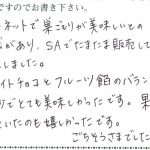 ですのでお書き下さい。
ネットで巣ごもりが美味しいとの
があり、SAでたまたま販売して
しました。
イトチョコとフルーツ餡のバラン
りでとても美味しかったです。果
いたのも嬉しかったです。
ごちそうさまでした